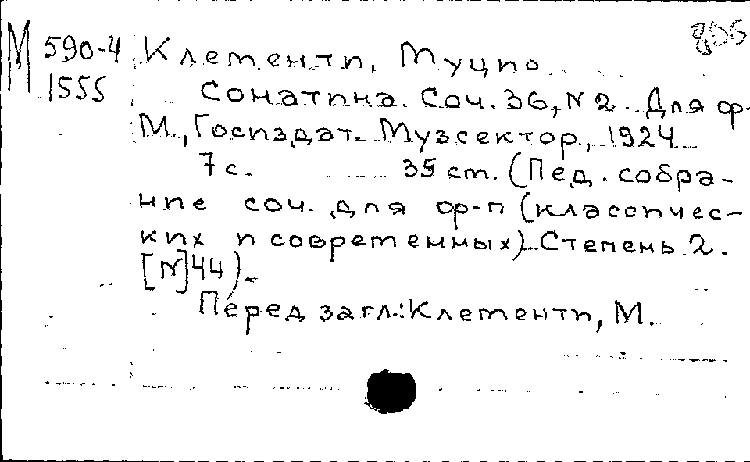 М 590-4 Клементи, Муцио
1555
Сонатина. Соч. 36, N 2. Для ф-
М., Госиздат. Музсектор, 1924
7 с. 35 см. (Пед. собра-
ние соч. для ф-п (классичес-
ких и современных). Степень 2.
[N] 44).
Перед загл.: Клементи, М.